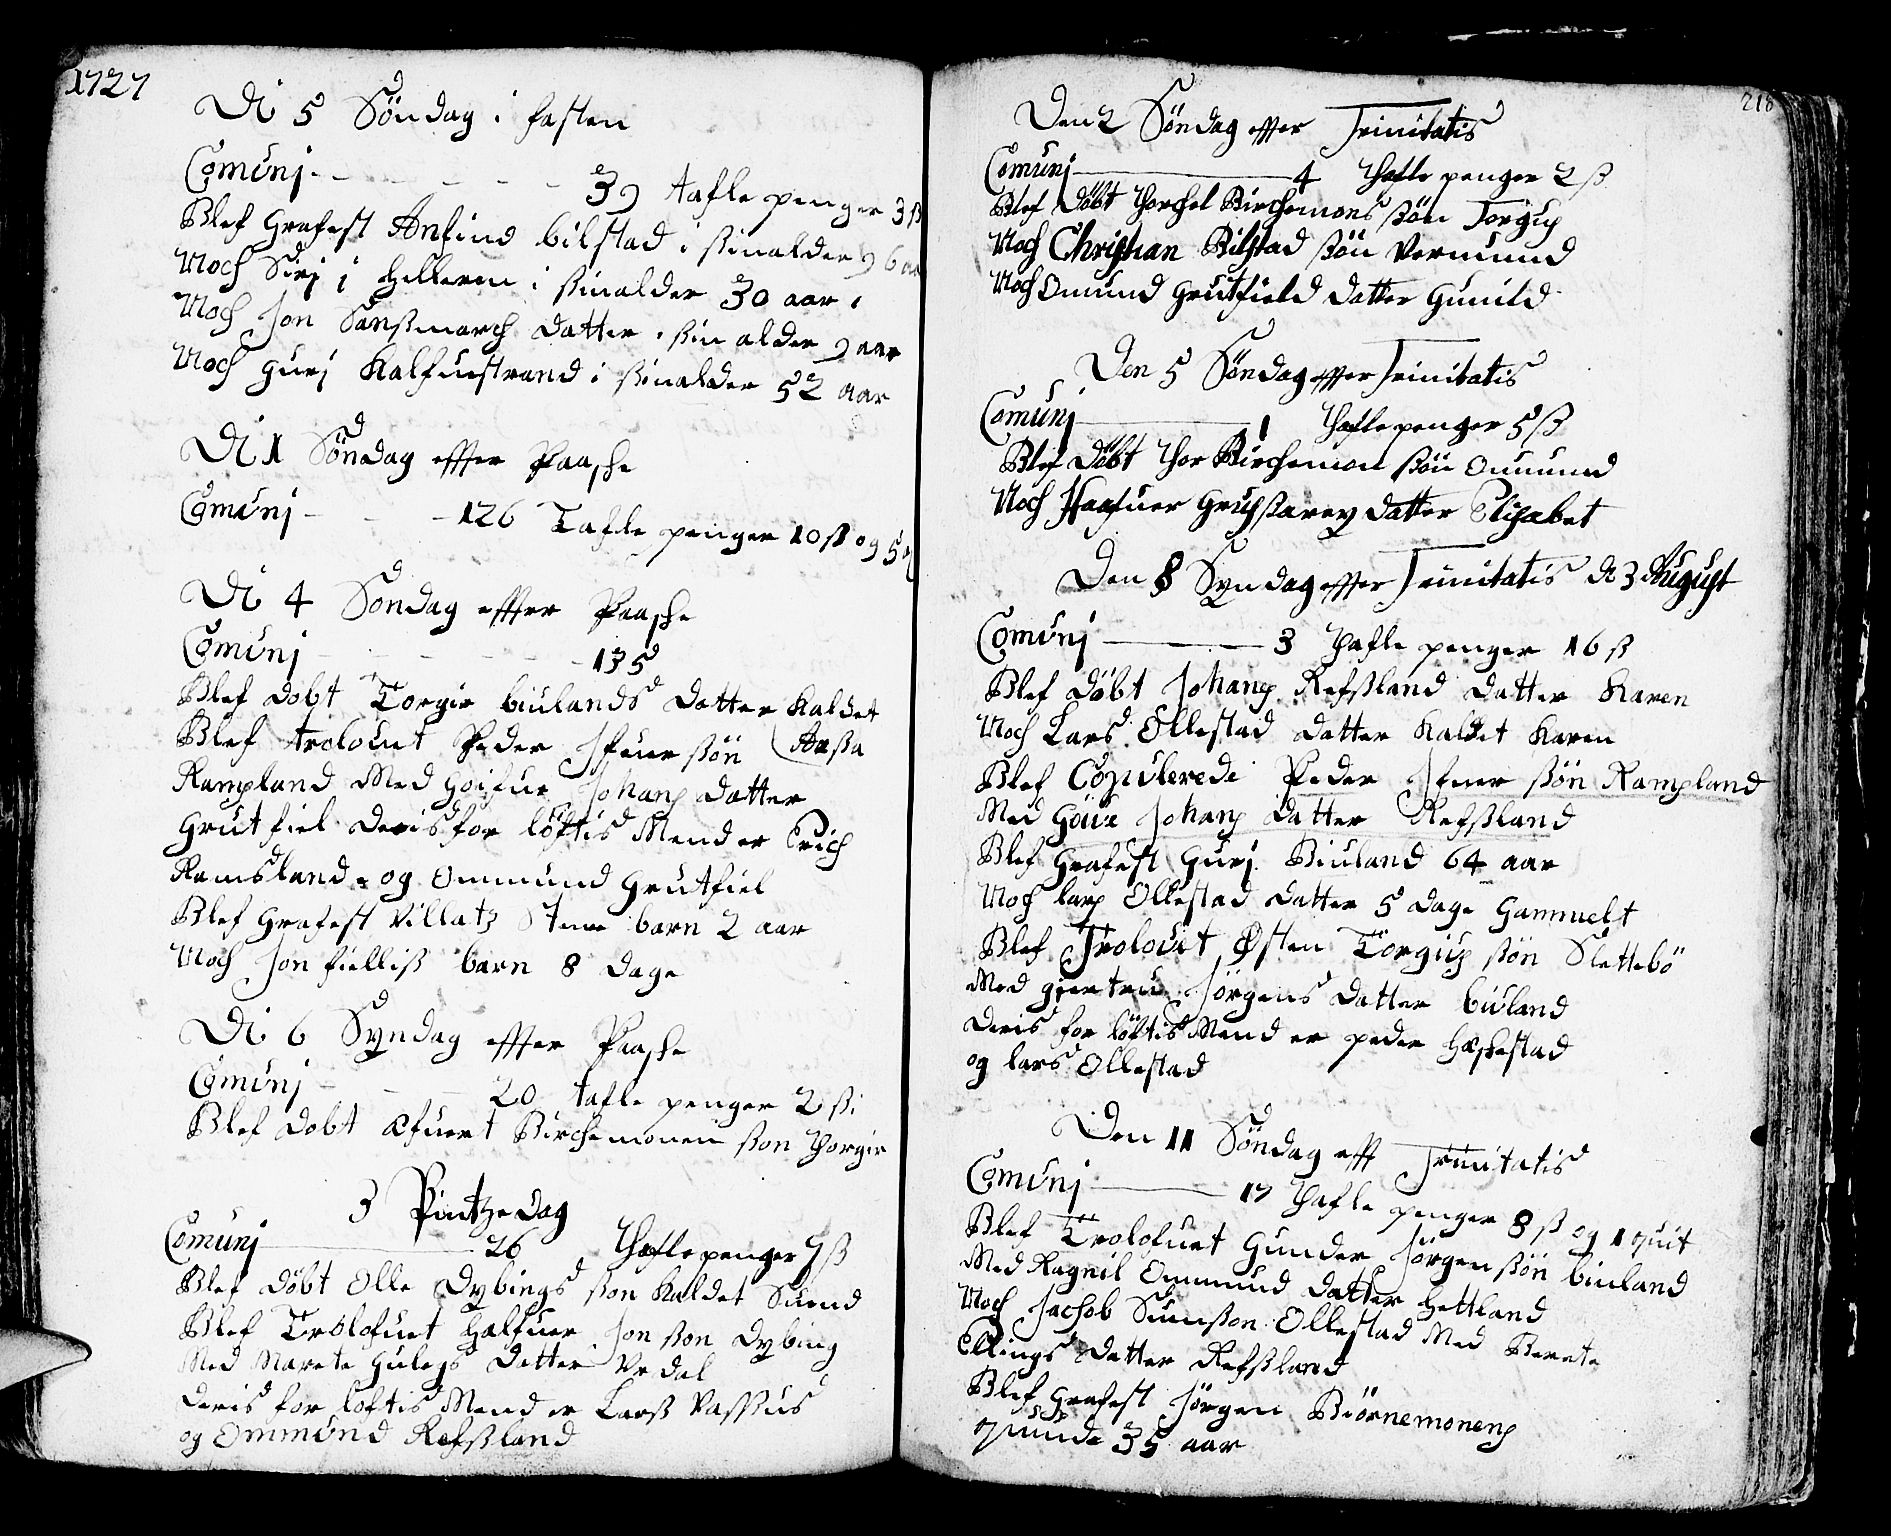 1727
Di 5 Söndag i fasten
Comunj - - - - - 39 tafle penger 3 ß
Blef Grafest Anfind bilstad i sinalder 96 aar
Noch Sirj i Helleren i ßinalder 30 aar
Noch Jon Sanßmarch datter i ßin alder 9 aar
Noch Gurj Kalfuestrand i ßinalder 52 aar
Di 1 Söndag effter Paaske
Comunj - - - 126 Tafle penger 10 ß og 5
Di 4 Söndag effter Paaske
Comunj - - - - - 135
Blef Dobt Torgir biulands datter Kaldet
Blef trolouet Peder Jfuer ßön (Aaßa
Rampland Med Goifue Johanß datter
Grutfiel deris for löftis Mend er Erich
Ramsland og Ommund Grutfiel
Blef Grafest Villatz Stene barn 2 aar
Noch Jon fielliß barn 8 dage
Di 6 Syndag effter Paaske
Comunj - - - 20 tafle penger 2 ß
Blef Dobt Efuert Birchemonen ßon Thorgir
3 Pintze Dag
Comunj - 26 Thafle penger 7 ß
Blef Döbt Olle Dybings ßon Kaldet Suend
Blef Trolofuet Halfuer Jon ßon Dybing
Med Marete Gulegs Datter Vrdal
Deris for löftis Mend er Larß Vasshus
og Ommund Refßland
218
Den 2 Söndag effter Trinitatis
Comunj - 4 Thafle penger 2 ß
Blef Döbt Thorchel Birchemons ßön Torgiuß
Noch Christian Bilstad ßön Vermund
Noch Omund Grutfield Datter Gunild
Den 5 Söndag effter Trinitatis
Comunj - 1 Thafle penger 5 ß
Blef Döbt Thor Birchemon ßön Ommund
Noch Haafuer datter Elisabet
Den 8 Syndag effter Trinitatis d 3 August
Comunj - 3 Thafle penger 16 ß
Blef Döbt Johanß Refßland datter Karen
Noch Lars Ollestad datter kaldet Karen
Blef Copulerede Peder Jfuer ßön Rampland
Med Göue Johanß datter Refßland
Blef Grafest Gurj Biuland 64 aar
Noch larß Ollestad datter 5 dage Gammelt
Blef Trolouet Østen Törgiuß ßön Slettebö
Med giertru Jörgens datter biuland
Deris for löftis Mend er peder Heskestad
og lars Ollestad
Den 11 Söndag efft Trinitatis
Comunj - 17 Thafle penger 8 ß og 1 quit
Blef Trolofuet Gunder Jörgen ßön biuland
Med Ragnil Ommund datter Hettland
Noch Jachob Suenßon Ollestad Med Berete
Ellings datter Refßland
Blef Grafest Jörgen Biörnemonenß
quinde 35 aar